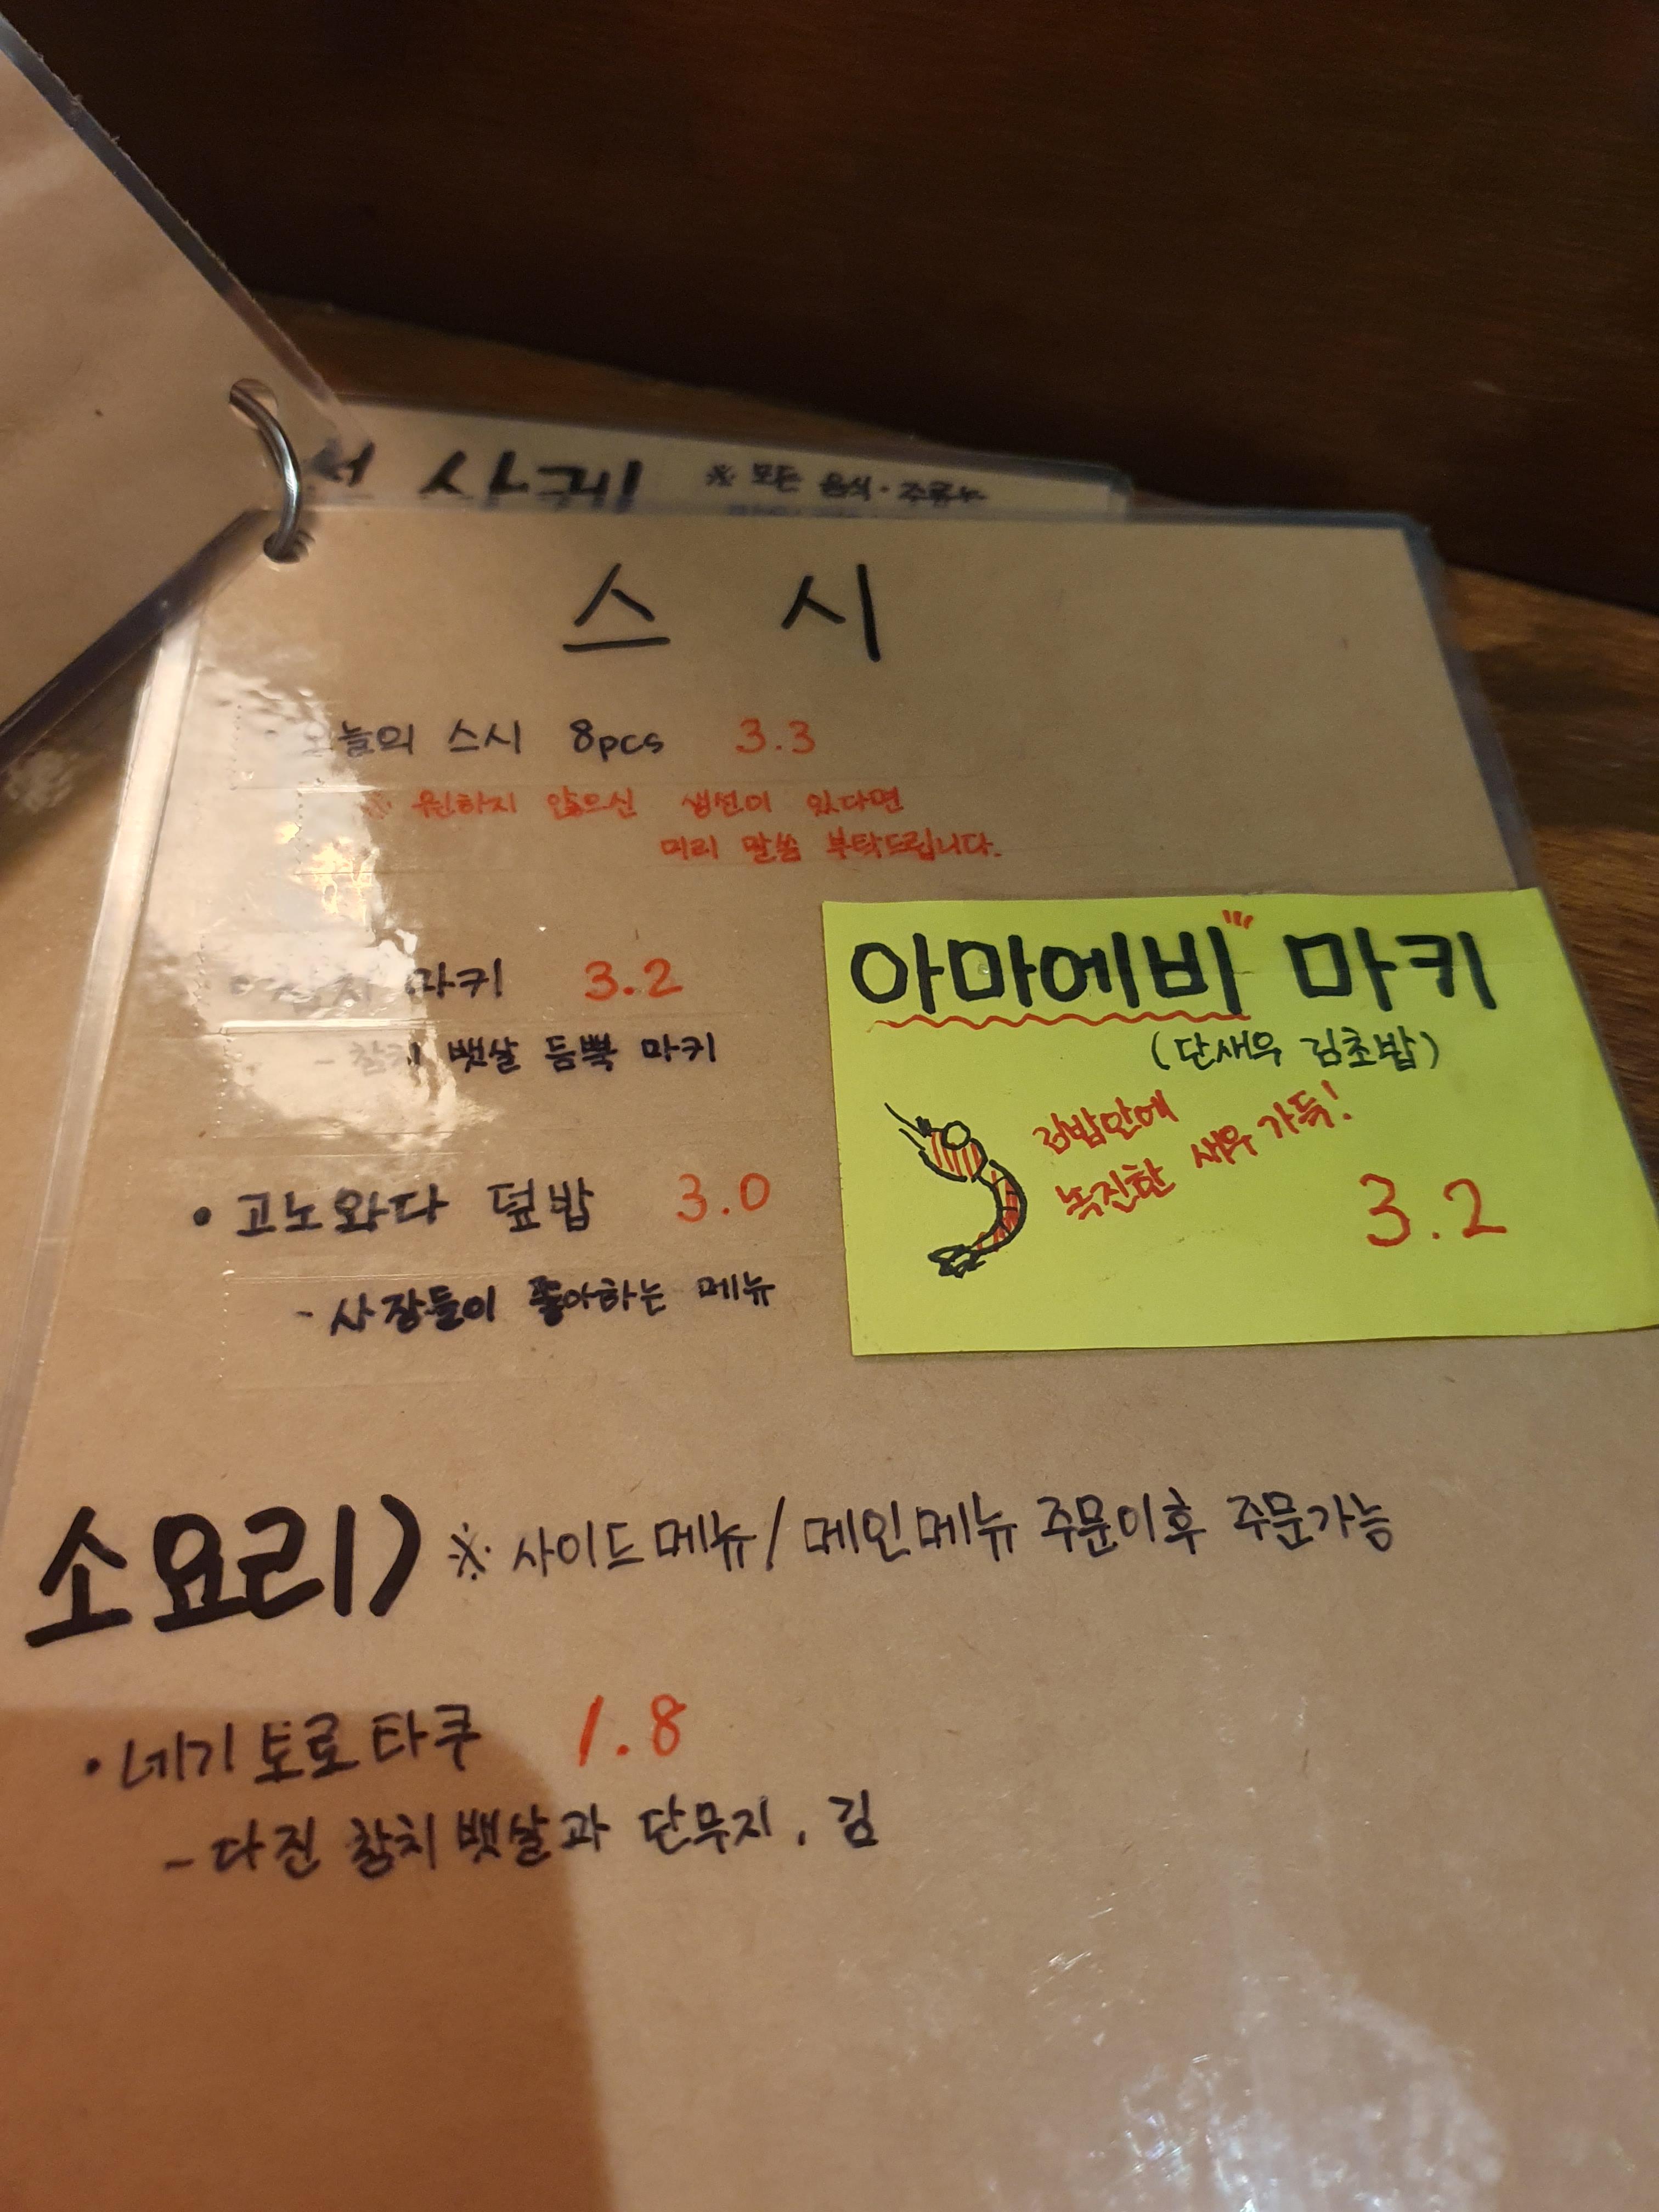 사케 ※ 모든 음식·주류는
스시
오늘의 스시 8pcs 3.3
※ 원하지 않으신 생선이 있다면
미리 말씀 부탁드립니다.
마키 3.2
- 참치 뱃살 듬뿍 마키
• 고노와다 덮밥 3.0
- 사장들이 좋아하는 메뉴
아마에비 마키
(단새우 김초밥)
김밥안에
녹진한 새우 가득!
3.2
소요리) ※ 사이드메뉴/메인메뉴 주문이후 주문가능
• 네기토로타쿠 1.8
- 다진 참치뱃살과 단무지, 김